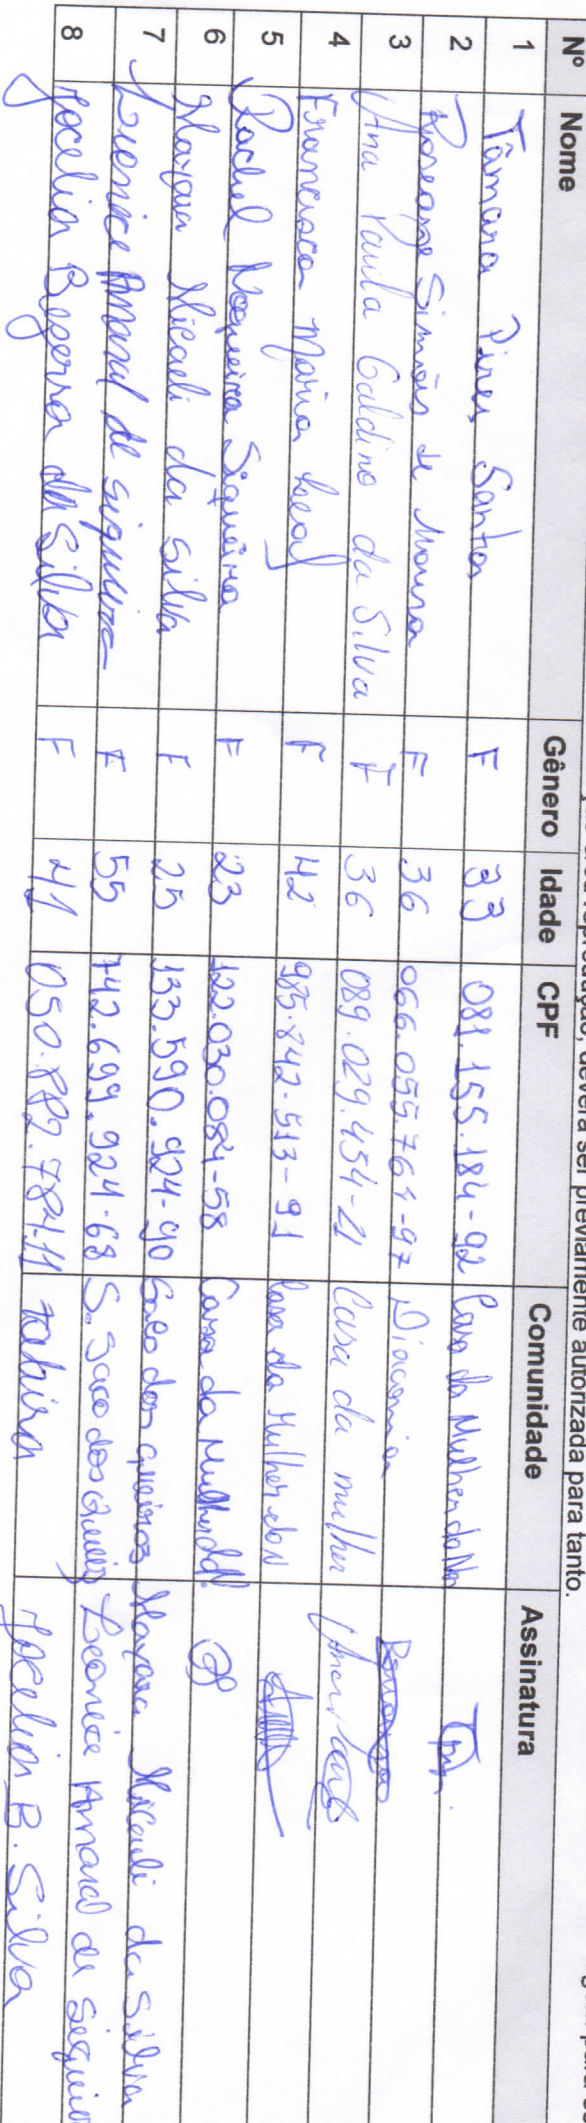 reprodução, deverá ser previamente autorizada para tanto.
Nº Nome Gênero Idade CPF Comunidade Assinatura
1 Tâmara Pires Santos F 33 081.155.184-92 Casa da Mulher do No
2 Roseane Simões de Moura F 36 066.055.764-97 Diaconia
3 Ana Paula Galdino da Silva F 36 089.029.454-21 Casa da mulher Ana Paula
4 Francisca Maria Leal F 42 985.842.513-91 Casa da Mulher do N
5 Rachel Nogueira Siqueira F 23 122.030.084-58 Casa da Mulher do N.
6 Mayara Micaeli da Silva F 25 133.590.924-90 Saco dos queiros Mayara Micaeli da Silva
7 Leonice Amaral de siqueira F 55 742.699.924-68 S. Saco dos Queiros Leonice Amaral de Sequeira
8 Jocelia Bezerra da Silva F 41 050.882.784-11 Tabira Jocelia B. Silva